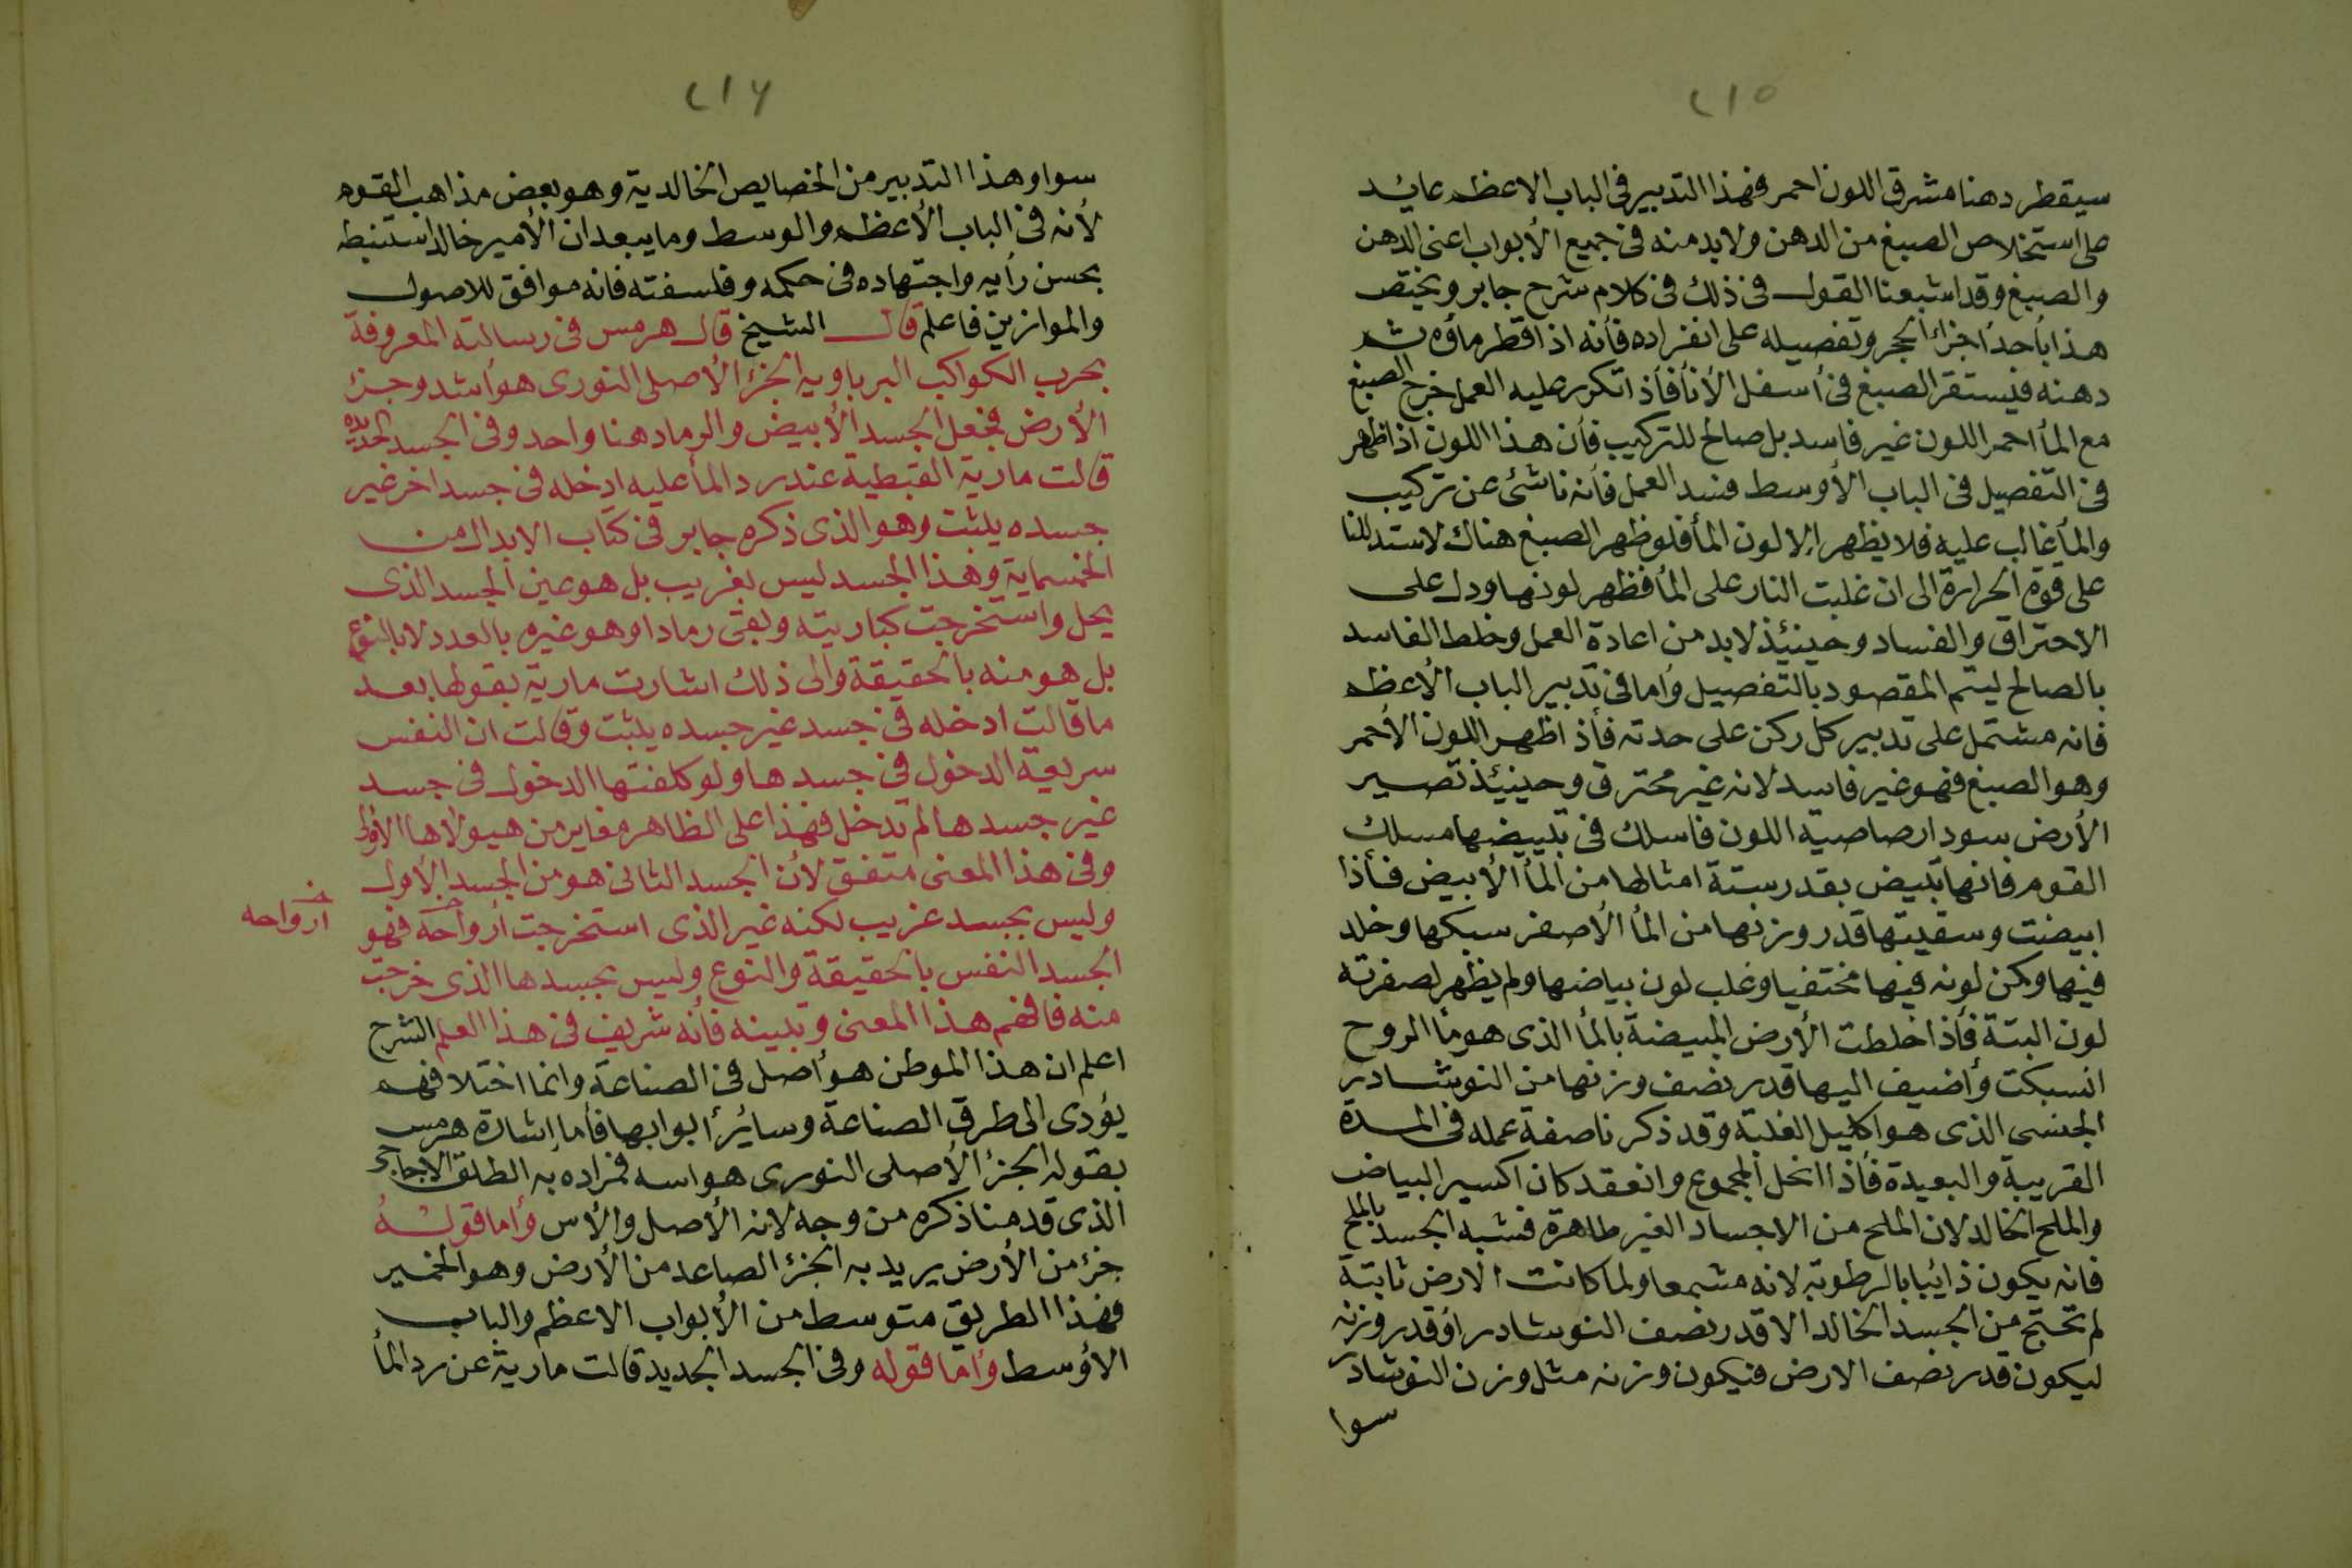 ٢١٥
سيقطر دهنا مشرق اللون احمر فهذا التدبير فى الباب الاعظم عايد
على استخلاص الصبغ من الدهن ولا بد منه فى جميع الأبواب اعنى الدهن
والصبغ وقد اشبعنا القول فى ذلك فى كلام شرح جابر ويختص
هذا بأحد أجزاء الحجر وتفصيله على انفراده فأنه اذا قطر ماؤه ثم
دهنه فيستقر الصبغ فى أسفل الأنأ فأذا تكرر عليه العمل خرج الصبغ
مع المأ احمر اللون غير فاسد بل صالح للتركيب فأن هذا اللون اذا ظهر
فى التفصيل فى الباب الأوسط فسد العمل فأنه ناشئ عن تركيب
والمأ غالب عليه فلا يظهر إلا لون المأ فلو ظهر الصبغ هناك لاستدللنا
على قوة الحرارة الى ان غلبت النار على المأ فظهر لونها ودل على
الاحتراق والفساد وحينئذ لا بد من اعادة العمل وخلط الفاسد
بالصالح ليتم المقصود بالتفصيل وأما فى تدبير الباب الأعظم
فانه مشتمل على تدبير كل ركن على حدته فأذا ظهر اللون الأحمر
وهو الصبغ فهو غير فاسد لانه غير محترق وحينئذ تصير
الأرض سودا رصاصية اللون فاسلك فى تبييضها مسلك
القوم فانها تبيض بقدر ستة امثالها من المأ الأبيض فأذا
ابيضت وسقيتها قدر وزنها من المأ الأصفر سبكها وخلد
فيها وكمن لونه فيها مختفيا وغلب لون بياضها ولم يظهر لصفرته
لون البتة فأذا خلطت الأرض المبيضة بالمأ الذى هو مأ الروح
انسبكت وأضيف اليها قدر نصف وزنها من النوشادر
الجنسى الذى هو اكليل الغلبة وقد ذكرنا صفة عمله فى المدة
القريبة والبعيدة فأذا انحل المجموع وانعقد كان اكسير البياض
والملح الخالد لان الملح من الاجساد الغير طاهرة فشبه الجسد بالملح
فانه يكون ذائبا بالرطوبة لانه مشمعا ولما كانت الارض ثابتة
لم تحتج من الجسد الخالد الا قدر نصف النوشادر او قدر وزنه
ليكون قدر نصف الارض فيكون وزنه مثل وزن النوشادر
سوا
٢١٦
سوا وهذا التدبير من الخصايص الخالدية وهو بعض مذاهب القوم
لأنه فى الباب الأعظم والوسط وما يبعد ان الأمير خالد استنبطه
بحسن رأيه واجتهاده فى حكمه وفلسفته فانه موافق للاصول
والموازين فاعلم قال الشيخ قال هرمس فى رسالته المعروفة
بحرب الكواكب البرباوية الجزء الأصلى النورى هو أشد وجزء
الأرض فجعل الجسد الأبيض والرماد هنا واحد وفى الجسد الجديد
قالت مارية القبطية عند رد المأ عليه ادخله فى جسد اخر غير
جسده يلبث وهو الذى ذكره جابر فى كتاب الابدال من
الخمسماية وهذا الجسد ليس بغريب بل هو عين الجسد الذى
يحل واستخرجت كباريته وبقى رمادا وهو غيره بالعدد لا بالنوع
بل هو منه بالحقيقة والى ذلك اشارت مارية بقولها بعد
ما قالت ادخله فى جسد غير جسده يلبث وقالت ان النفس
سريعة الدخول فى جسدها ولو كلفتها الدخول فى جسد
غير جسدها لم تدخل فهذا على الظاهر مغاير من هيولاها الأولى
وفى هذا المعنى متفق لأن الجسد الثانى هو من الجسد الأول
وليس بجسد غريب لكنه غير الذى استخرجت أرواحه فهو
أرواحه
الجسد النفس بالحقيقة والنوع وليس بجسدها الذى خرجت
منه فافهم هذا المعنى وتبينه فأنه شريف فى هذا العلم الشرح
اعلم ان هذا الموطن هو أصل فى الصناعة وانما اختلافهم
يؤدى الى طرق الصناعة وسائر أبوابها فأما إشارة هرمس
بقوله الجزء الأصلى النورى هو اسد فمراده به الطلق
الذى قدمنا ذكره من وجه لانه الأصل والأس وأما قوله
جزء من الأرض يريد به الجزء الصاعد من الأرض وهو الخمير
فهذا الطريق متوسط من الأبواب الاعظم والباب
الاوسط وأما قوله وفى الجسد الجديد قالت مارية عن رد المأ